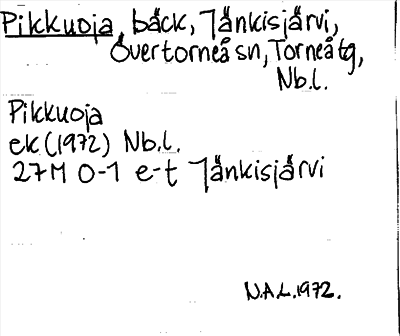 Pikkuoja, bäck, Jänkisjärvi,
Övertorneå sn, Torneå tg,
Nb.l.
Pikkuoja
ek (1972) Nb.l.
27M 0-1 e-t Jänkisjärvi
N.A.L. 1972.